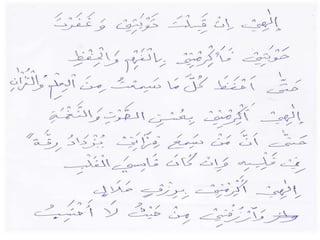 إلهي إن قبلت توبتي و غفرت
حوبتي فأكرمني بالفهم والحفظ
حتى أحفظ كل ما سمعت من العلم والقرآن
إلهي أكرمني بحسن الصوت والنغمة
حتى أن من سمع قرائتي يزداد رقة
في قلبه وإن كان قاسي القلب
إلهي أكرمني برزق حلال
وارزقني من حيث لا أحتسب